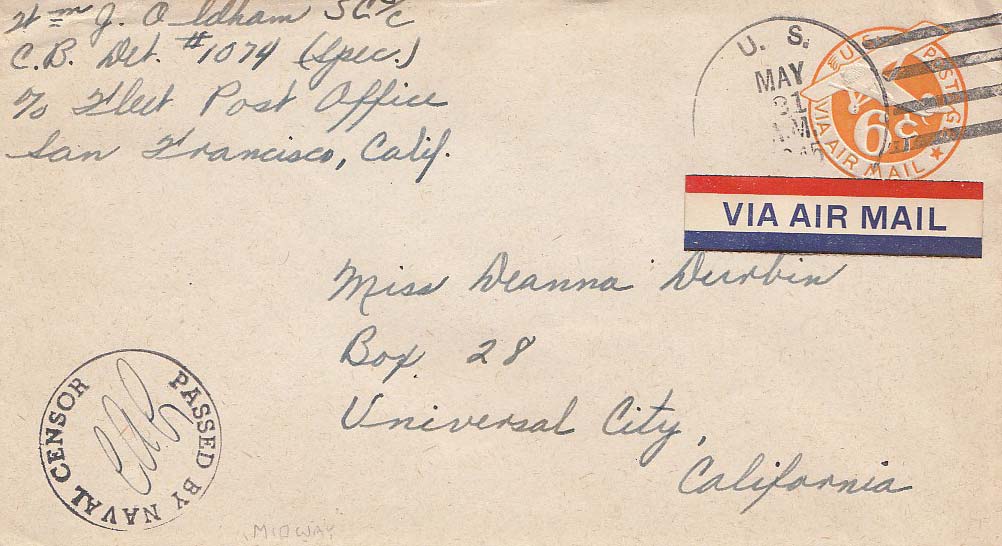 Wm J. Oldham SC 3/c
C.B. Det. #1074 (Spec.)
c/o Fleet Post Office
San Francisco, Calif.
U. S.
MAY
31
A.M.
1945
U.S. POSTAGE
6¢
VIA AIR MAIL
VIA AIR MAIL
Miss Deanna Durbin
Box 28
Universal City,
California
PASSED BY NAVAL CENSOR
MIDWAY